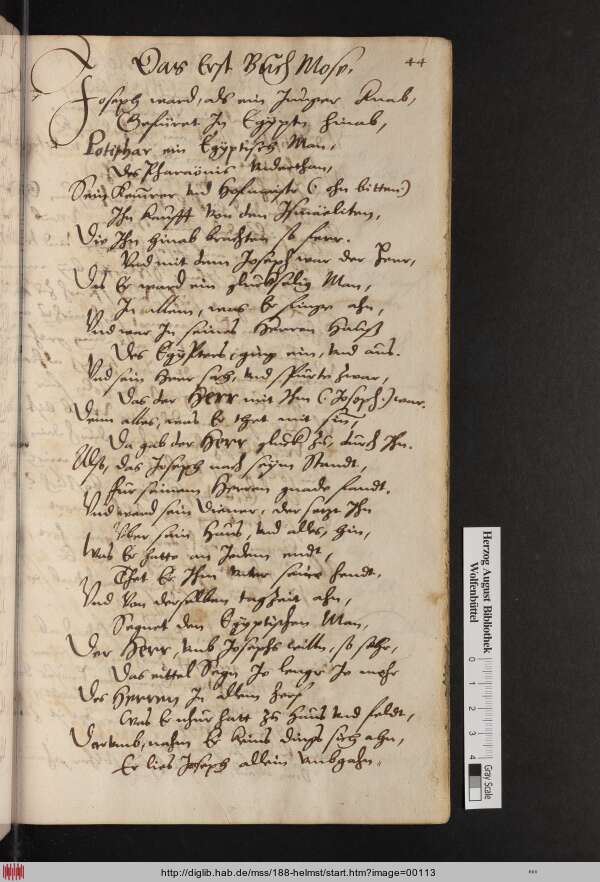 Das Erst Buch Mose.
44
Joseph ward, als ein Junger Knab,
Gefüret In Egypten hinab,
Potiphar ein Egyptisch Man,
Des Pharaonis Underthan,
Sein Kemrer und Hofmeister (: ohn bitten:)
Ihn kaufft von den Ismaeliten,
Die Ihn hinab brachten so ferr.
Und mit dem Joseph war der Herr,
Das Er ward ein glückselig Man,
In allem, was Er finge ahn,
Und war In seines Herren Hauß
Des Egypters, ging ein, und aus.
Und sein Herr sach, und spürte zwar,
Das der Herr mit Ihm (: Joseph :) war.
Denn alles, was Er thet mit
Da gab der Herr glück zu, durch Ihn.
Also, das Joseph nach seym Standt,
Für seinem Herren gnade fandt.
Und ward sein Diener, der setzt Ihn
Über sein Haus, und alles, hin,
Was Er hatte an Jedem endt,
Thet Er Ihm unter seine hendt.
Und von derselben tagzeit ahn,
Segnet den Egyptischen Man,
Der Herr, umb Josephs willn, so sehr,
Das eittel Segen Je lenger Je mehr
Des Herren In allem
Was Er nhur hatt zu Haus und feldt,
Darumb, nahm Er keins dings sich ahn,
Er lies Joseph allein umbgahn.
Herzog August Bibliothek
Wolfenbüttel
0 1 2 3 4
Gray Scale
http://diglib.hab.de/mss/188-helmst/start.htm?image=00113